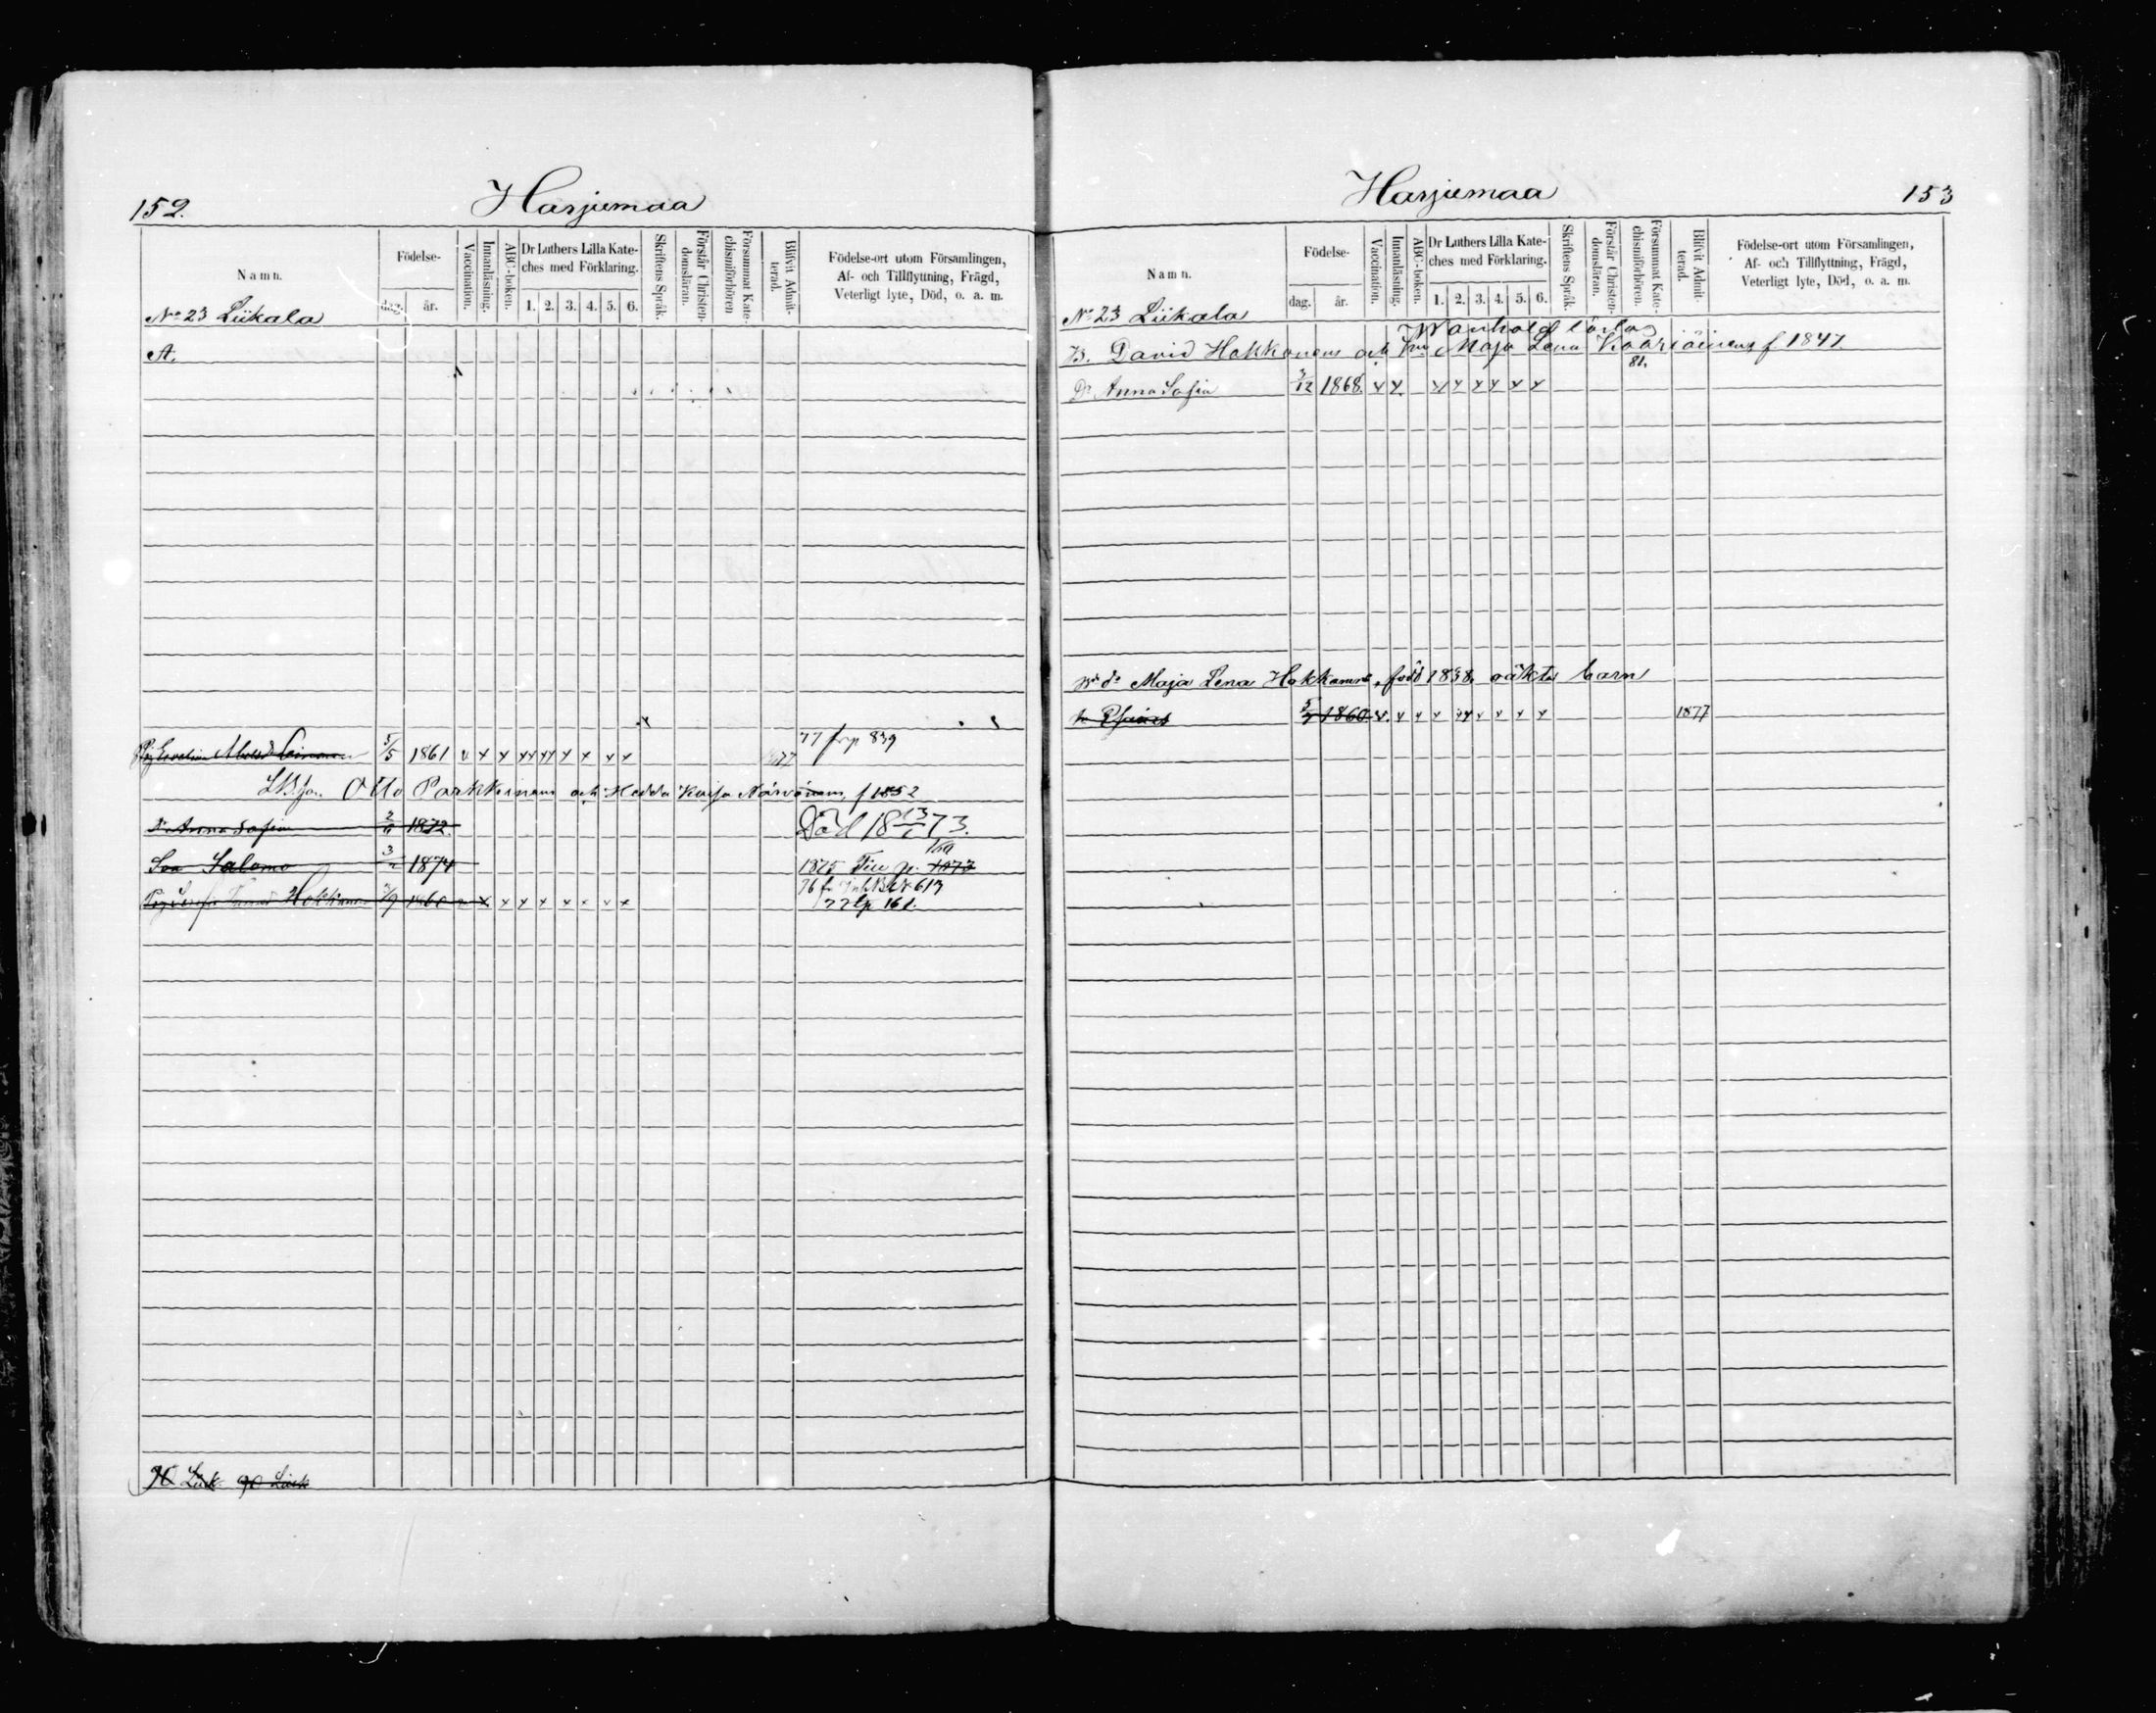 152.
Harjumaa
Namn.
Födelse-
dag.
år.
Vaccination.
Innanläsning.
ABC-boken.
Dr Luthers Lilla Kate-
ches med Förklaring.
1. 2. 3. 4. 5. 6.
Skriftens Språk.
Förstår Christen-
domsläran.
Försummat Kate-
chismiförhören
Blifvit Admit-
terad.
Födelse-ort utom Församlingen,
Af- och Tillflyttning, Frägd,
Veterligt lyte, Död, o. a. m.
No 23 Liikala
A.
5/5 1861 v x x xx xx x x x x 77 frp 839
Otto Parkkinens och Hedda Kaisa f 1852
Dr Anna Sofia 1872. Död 18 13/1 73.
Son Salomo 3 1874 1875 Till p. 1073
76 fr 613
Hokkanen /9 1860 x x x x x x x x 77 tp 161.
90 Liik 90 Liik
153
Harjumaa
Namn.
Födelse-
dag.
år.
Vaccination.
Innanläsning.
ABC-boken.
Dr Luthers Lilla Kate-
ches med Förklaring.
1. 2. 3. 4. 5. 6.
Skriftens Språk.
Förstår Christen-
domsläran.
Försummat Kate-
chismiförhören.
Blifvit Admit-
terad.
Födelse-ort utom Församlingen,
Af- och Tillflyttning, Frägd,
Veterligt lyte, Död, o. a. m.
No 23 Liikala
B. David Hokkanens och Maja Lena Kääriäinens f 1847
81.
Dr Anna Sofia 3/12 1868. x x x x x x x x
Maja Lena Hokkanens, född 1838, oäkta barn
1860 v. x x x xx x x x x 1877